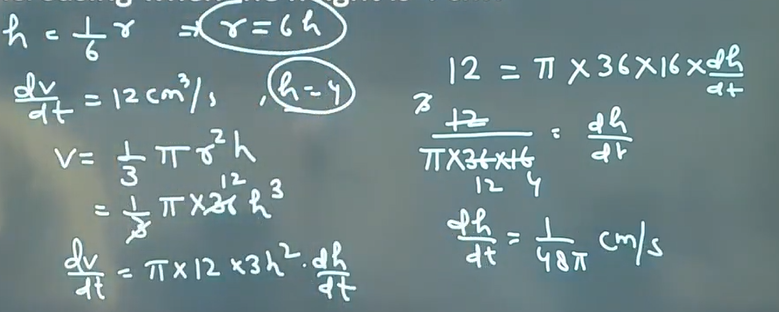 h = 1/6 r ⇒ r = 6h
dv/dt = 12 cm³/s , h = 4
V = 1/3 π r² h
= 1/3 π × 36 12 h³
dv/dt = π × 12 × 3h² · dh/dt
12 = π × 36 × 16 × dh/dt
3 12 / π × 36 × 16 12 4 = dh/dt
dh/dt = 1/48π cm/s